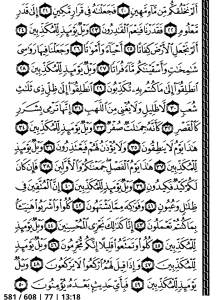 أَلَمْ نَخْلُقكُّم مِّن مَّآءٍ مَّهِينٍ ٢٠ فَجَعَلْنَٰهُ فِى قَرَارٍ مَّكِينٍ ٢١ إِلَىٰ قَدَرٍ
مَّعْلُومٍ ٢٢ فَقَدَرْنَا فَنِعْمَ ٱلْقَٰدِرُونَ ٢٣ وَيْلٌ يَوْمَئِذٍ لِّلْمُكَذِّبِينَ ٢٤
أَلَمْ نَجْعَلِ ٱلْأَرْضَ كِفَاتًا ٢٥ أَحْيَآءً وَأَمْوَٰتًا ٢٦ وَجَعَلْنَا فِيهَا رَوَٰسِىَ
شَٰمِخَٰتٍ وَأَسْقَيْنَٰكُم مَّآءً فُرَاتًا ٢٧ وَيْلٌ يَوْمَئِذٍ لِّلْمُكَذِّبِينَ ٢٨
ٱنطَلِقُوٓا۟ إِلَىٰ مَا كُنتُم بِهِۦ تُكَذِّبُونَ ٢٩ ٱنطَلِقُوٓا۟ إِلَىٰ ظِلٍّ ذِى ثَلَٰثِ
شُعَبٍ ٣٠ لَّا ظَلِيلٍ وَلَا يُغْنِى مِنَ ٱللَّهَبِ ٣١ إِنَّهَا تَرْمِى بِشَرَرٍ
كَٱلْقَصْرِ ٣٢ كَأَنَّهُۥ جِمَٰلَتٌ صُفْرٌ ٣٣ وَيْلٌ يَوْمَئِذٍ لِّلْمُكَذِّبِينَ ٣٤
هَٰذَا يَوْمُ لَا يَنطِقُونَ ٣٥ وَلَا يُؤْذَنُ لَهُمْ فَيَعْتَذِرُونَ ٣٦ وَيْلٌ يَوْمَئِذٍ
لِّلْمُكَذِّبِينَ ٣٧ هَٰذَا يَوْمُ ٱلْفَصْلِ جَمَعْنَٰكُمْ وَٱلْأَوَّلِينَ ٣٨ فَإِن كَانَ
لَكُمْ كَيْدٌ فَكِيدُونِ ٣٩ وَيْلٌ يَوْمَئِذٍ لِّلْمُكَذِّبِينَ ٤٠ إِنَّ ٱلْمُتَّقِينَ فِى
ظِلَٰلٍ وَعُيُونٍ ٤١ وَفَوَٰكِهَ مِمَّا يَشْتَهُونَ ٤٢ كُلُوا۟ وَٱشْرَبُوا۟ هَنِيٓـًٔۢا
بِمَا كُنتُمْ تَعْمَلُونَ ٤٣ إِنَّا كَذَٰلِكَ نَجْزِى ٱلْمُحْسِنِينَ ٤٤ وَيْلٌ يَوْمَئِذٍ
لِّلْمُكَذِّبِينَ ٤٥ كُلُوا۟ وَتَمَتَّعُوا۟ قَلِيلًا إِنَّكُم مُّجْرِمُونَ ٤٦ وَيْلٌ يَوْمَئِذٍ
لِّلْمُكَذِّبِينَ ٤٧ وَإِذَا قِيلَ لَهُمُ ٱرْكَعُوا۟ لَا يَرْكَعُونَ ٤٨ وَيْلٌ يَوْمَئِذٍ
لِّلْمُكَذِّبِينَ ٤٩ فَبِأَىِّ حَدِيثٍۭ بَعْدَهُۥ يُؤْمِنُونَ ٥٠
581 / 608 | 77 | 13:18